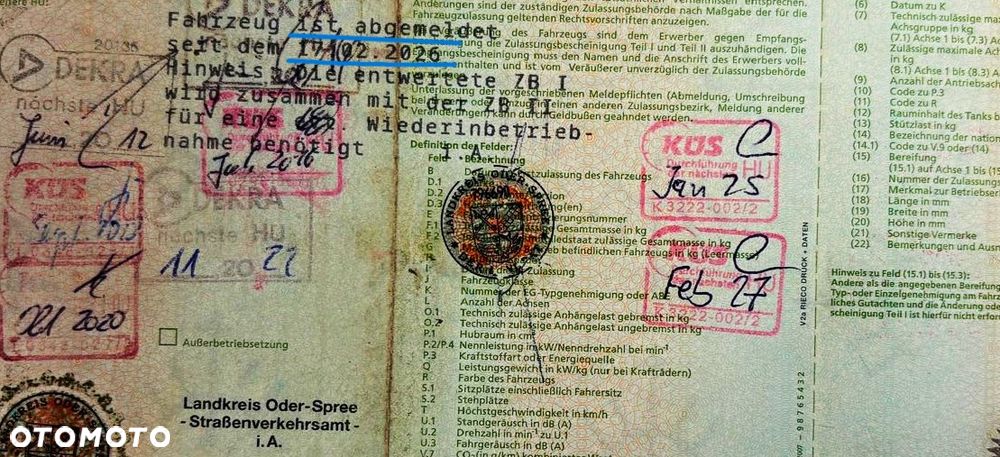 Fahrzeug ist abgemeldet
seit dem 17/02 2026
Hinweis : Die entwertete ZB I
wird zusammen mit der ZB II
für eine Wiederinbetrieb-
nahme benötigt
i A
DEKRA
DEKRA
nächste HU
Juni 12
KÜS
Juli 2016
KÜS
Sept.
DEKRA
HU
11 20 22
Okt 2020
Außerbetriebsetzung
Landkreis Oder-Spree
- Straßenverkehrsamt -
i.A.
LANDKREIS ODER-SPREE
OTOMOTO
Änderungen sind der zuständigen Zulassungsbehörde nach Maßgabe der für die
Fahrzeugzulassung geltenden Rechtsvorschriften anzuzeigen.
des Fahrzeugs sind dem Erwerber gegen Empfangs-
die Zulassungsbescheinigung Teil I und Teil II auszuhändigen. Die
bestätigung muss den Namen und die Anschrift des Erwerbers voll-
enthalten und ist vom Veräußerer unverzüglich der Zulassungsbehörde
Unterlassung der vorgeschriebenen Meldepflichten (Abmeldung, Umschreibung
in einen anderen Zulassungsbezirk, Meldung anderer
Veränderungen) kann durch Geldbußen geahndet werden.
Definition der Felder:
Feld Bezeichnung
B Erstzulassung des Fahrzeugs
D.1
D.2
D.3
E
F.1
F.2 zulässige Gesamtmasse in kg
G befindlichen Fahrzeugs in kg (Leermasse)
H
I Zulassung
J Fahrzeugklasse
K Nummer der EG-Typgenehmigung oder ABE
L Anzahl der Achsen
O.1 Technisch zulässige Anhängelast gebremst in kg
O.2 Technisch zulässige Anhängelast ungebremst in kg
P.1 Hubraum in cm³
P.2/P.4 Nennleistung in kW/Nenndrehzahl bei min⁻¹
P.3 Kraftstoffart oder Energiequelle
Q Leistungsgewicht in kW/kg (nur bei Krafträdern)
R Farbe des Fahrzeugs
S.1 Sitzplätze einschließlich Fahrersitz
S.2 Stehplätze
T Höchstgeschwindigkeit in km/h
U.1 Standgeräusch in dB (A)
U.2 Drehzahl in min⁻¹ zu U.1
U.3 Fahrgeräusch in dB (A)
V.7 CO₂ (in g/km)
LANDKREIS ODER-SPREE
KÜS
Durchführung
der nächsten HU
Jan 25
K 3222-002/2
KÜS
Durchführung
HU
Feb 27
K 3222-002/2
V2a RIECO DRUCK + DATEN
98765432
(6) Datum zu K
(7) Technisch zulässige
Achsgruppe in kg
(7.1) Achse 1 bis (7.3)
(8) Zulässige maximale
in kg
(8.1) Achse 1 bis (8.3)
(9) Anzahl der Antriebsach
(10) Code zu P.3
(11) Code zu R
(12) Rauminhalt des Tanks
(13) Stützlast in kg
(14) Bezeichnung der nation
(14.1) Code zu V.9 oder (14)
(15) Bereifung
(15.1) auf Achse 1 bis
(16) Nummer der Zulassung
(17) Merkmal zur Betriebse
(18) Länge in mm
(19) Breite in mm
(20) Höhe in mm
(21) Sonstige Vermerke
(22) Bemerkungen und Ausn
Hinweis zu Feld (15.1) bis (15.3):
Andere als die angegebenen Bereifung
Typ- oder Einzelgenehmigung am Fahrz
liches Gutachten und die Änderung
scheinigung Teil I ist hierfür nicht erfor